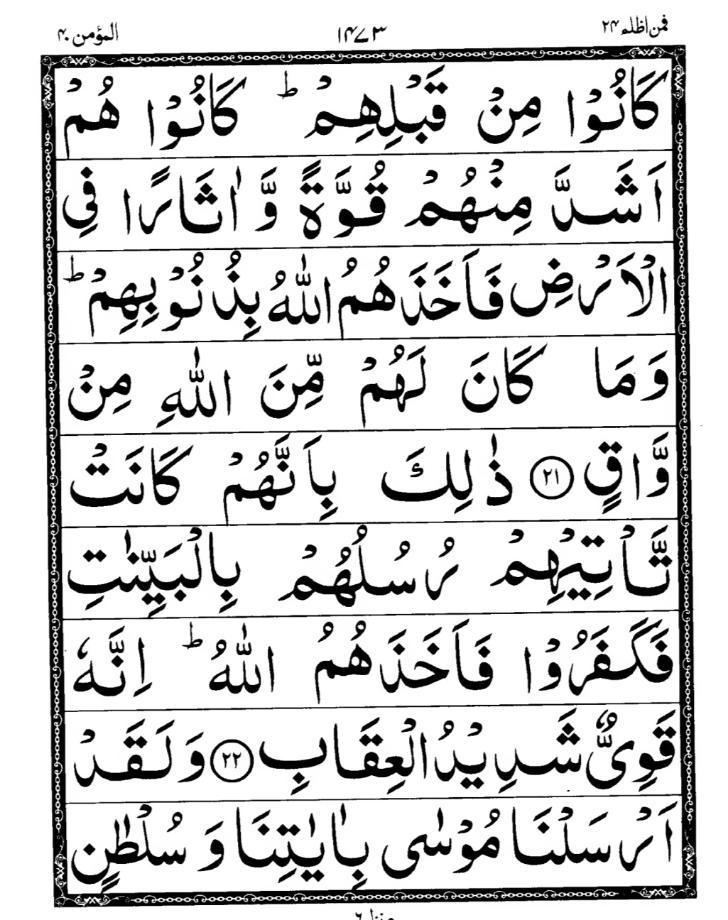 فمن اظلم ۲۴ ۱۴۷۳ المؤمن ۴۰
كَانُوْا مِنْ قَبْلِهِمْ ؕ كَانُوْا هُمْ
اَشَدَّ مِنْهُمْ قُوَّةً وَّ اٰثَارًا فِی
الْاَرْضِ فَاَخَذَهُمُ اللّٰهُ بِذُنُوْبِهِمْ ؕ
وَ مَا كَانَ لَهُمْ مِّنَ اللّٰهِ مِنْ
وَّاقٍ ﴿۲۱﴾ ذٰلِكَ بِاَنَّهُمْ كَانَتْ
تَّاْتِیْهِمْ رُسُلُهُمْ بِالْبَیِّنٰتِ
فَكَفَرُوْا فَاَخَذَهُمُ اللّٰهُ ؕ اِنَّهٗ
قَوِیٌّ شَدِیْدُ الْعِقَابِ ﴿۲۲﴾ وَ لَقَدْ
اَرْسَلْنَا مُوْسٰی بِاٰیٰتِنَا وَ سُلْطٰنٍ